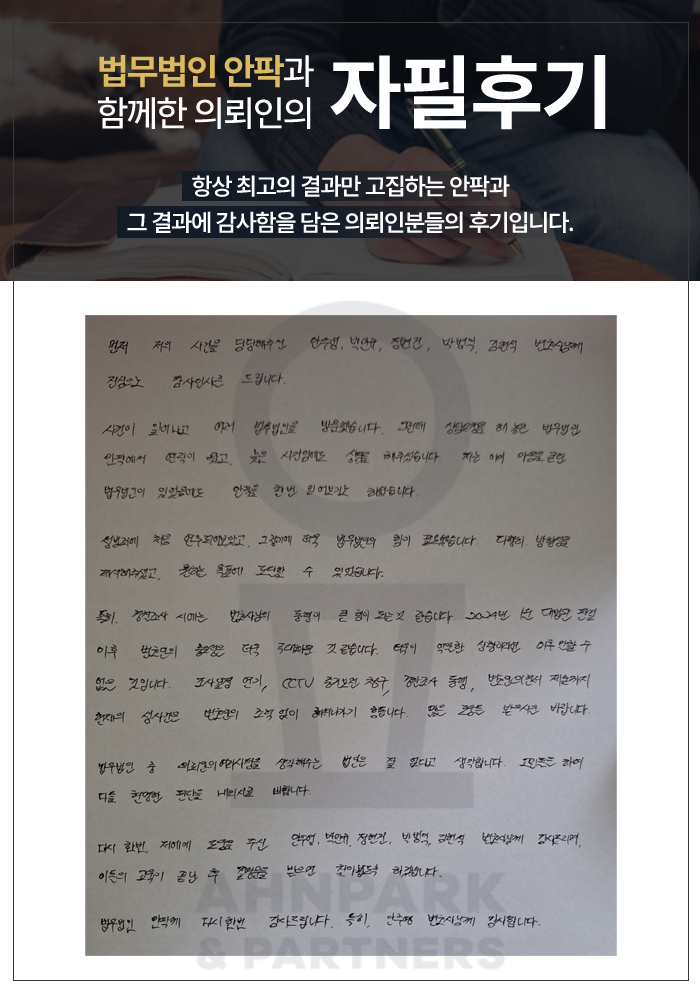 법무법인 안팍과
함께한 의뢰인의
자필후기
항상 최고의 결과만 고집하는 안팍과
그 결과에 감사함을 담은 의뢰인분들의 후기입니다.
먼저 저의 사건을 담당해주신 안주영, 박민규, 정현진, 박병익, 김현식 변호사님께
진심으로 감사인사를 드립니다.
사건이 일어나고 여러 법무법인을 방문했습니다. 그런데 상담요청을 해 놓은 법무법인
안팍에서 연락이 왔고, 늦은 시간임에도 상담을 해주셨습니다. 저는 이미 마음을 굳힌
법무법인이 있었음에도 안팍을 한번 믿어보기로 하였습니다.
성범죄에 처음 연루되어보았고, 그렇기에 더욱 법무법인의 힘이 필요했습니다. 다행히, 방향성을
제시해주셨고, 원하는 목표에 도달할 수 있었습니다.
특히, 경찰조사 시에는 변호사님의 동행이 큰 힘이 되는것 같습니다. 2024년 1월 대법원 판결
이후 변호인의 중요성은 더욱 극대화된 것 같습니다. 더욱이 억울한 심정이라면 이루 말할 수
없을 것입니다. 조사일정 연기, CCTV 증거보전 청구, 경찰조사 동행, 변호인의견서 제출까지
현재의 성사건은 변호인의 조력 없이 헤쳐나가기 힘듭니다. 많은 도움을 받으시길 바랍니다.
법무법인 중 의뢰인의 입장을 생각해주는 법인은 잘 없다고 생각합니다. 고민들을 하여
다들 현명한 판단을 내리시길 바랍니다.
다시 한번, 저에게 도움을 주신 안주영, 박민규, 정현진, 박병익, 김현식 변호사님께 감사드리며,
이들의 교육이 끝난 후 좋은일을 받으면 찾아뵙도록 하겠습니다.
법무법인 안팍에 다시한번 감사드립니다. 특히, 안주영 변호사님께 감사합니다.
AHNPARK
& PARTNERS